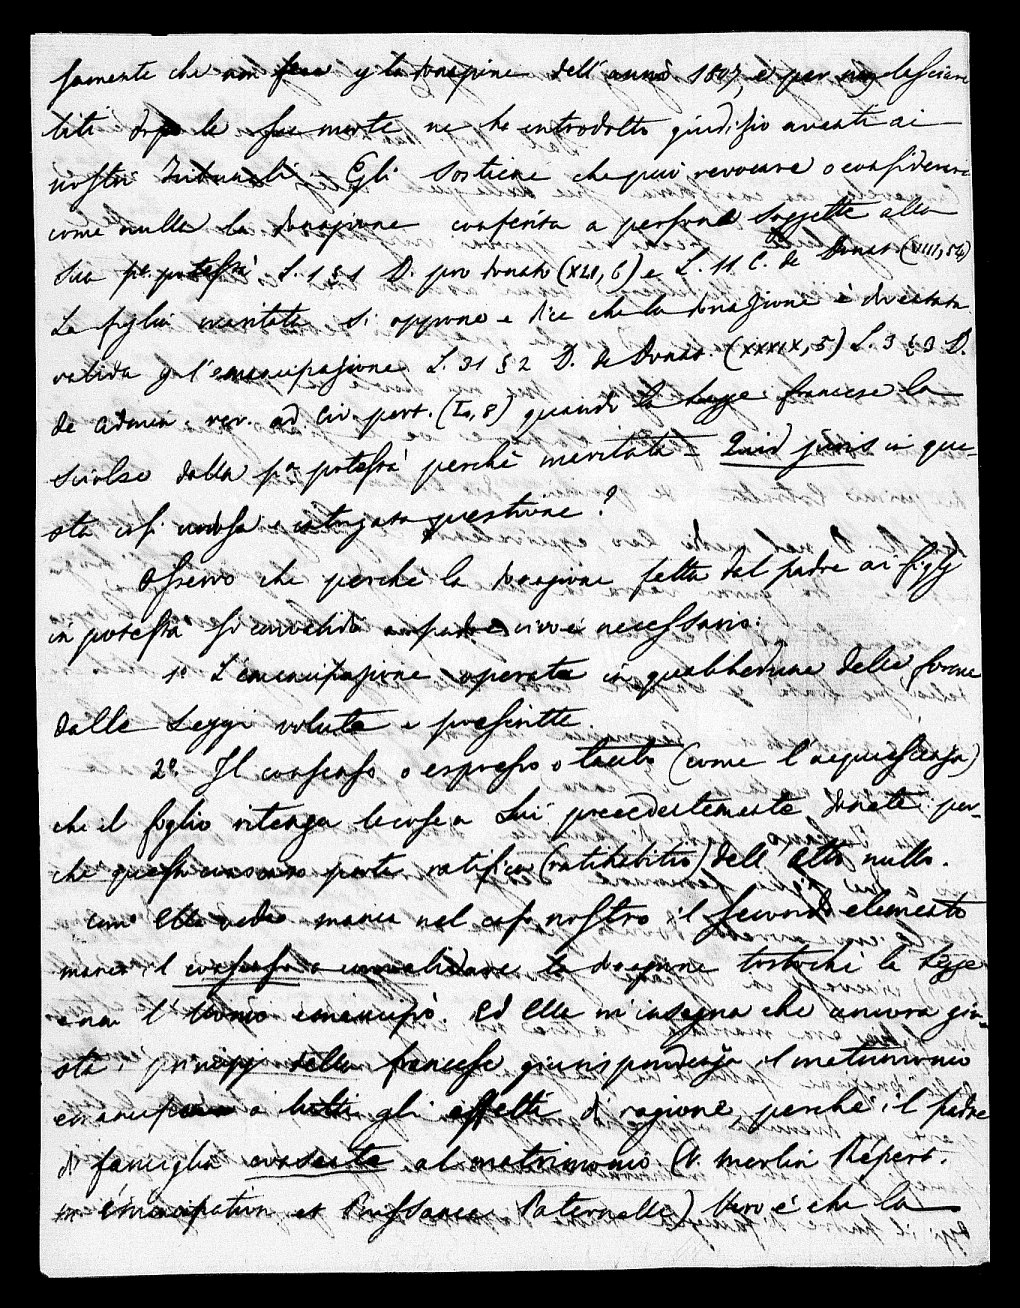 samente che non fece p la donazione dell'anno 1807, e per non lasciare
liti dopo la sua morte ne ha introdotto giudizio avanti ai
nostri Tribunali. Egli sostiene che può revocare o considerare
come nulla la donazione conferita a persona soggetta alla
sua pa. potestà L. 1 § 1 D. pro donato (XLI, 6) e L. 11 C. de Donat (VIII, 54)
La figlia maritata si oppone e dice che la donazione è diventata
valida p l'emancipazione L. 31 § 2 D. de Donat. (XXXIX, 5) L. 3 § 3 D.
de admin. rer. ad civ. pert. (L, 8) quando la Legge francese la
sciolse dalla pa potestà perchè maritata = Quid juris in que-
sta così confusa e intrigata questione?
Osservo che perchè la donazione fatta dal padre ai figlj
in potestà si convalidi necessario:
1o L'emancipazione operata in qualcheduna delle forme
dalle Leggi volute e prescritte.
2o Il consenso o espresso o tacito (come l'acquiescenza)
che il figlio ritenga le cose a Lui precedentemente donate per-
che questo consenso porta ratifica (ratihabitio) dell'atto nullo.
Com' Ella vede manca nel caso nostro il secondo elemento
manca il consenso a convalidare la donazione tostochè la Legge
e non l'Uomo emancipò. Ed Ella m'insegna che ancora giu-
sta i principj della francese giurisprudenza il matrimonio
emancipa a tutti gli effetti di ragione, perchè il padre
di famiglia consente al matrimonio (V. Merlin Répert.
Emancipation et Puissance Paternelle) Vero è che la